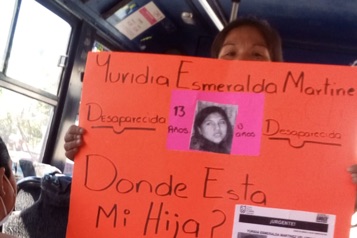 Yuridia Esmeralda Martine
Desaparecida
13
Años
13
años
Desaparecida
Donde Esta
Mi Hija?
¡URGENTE!